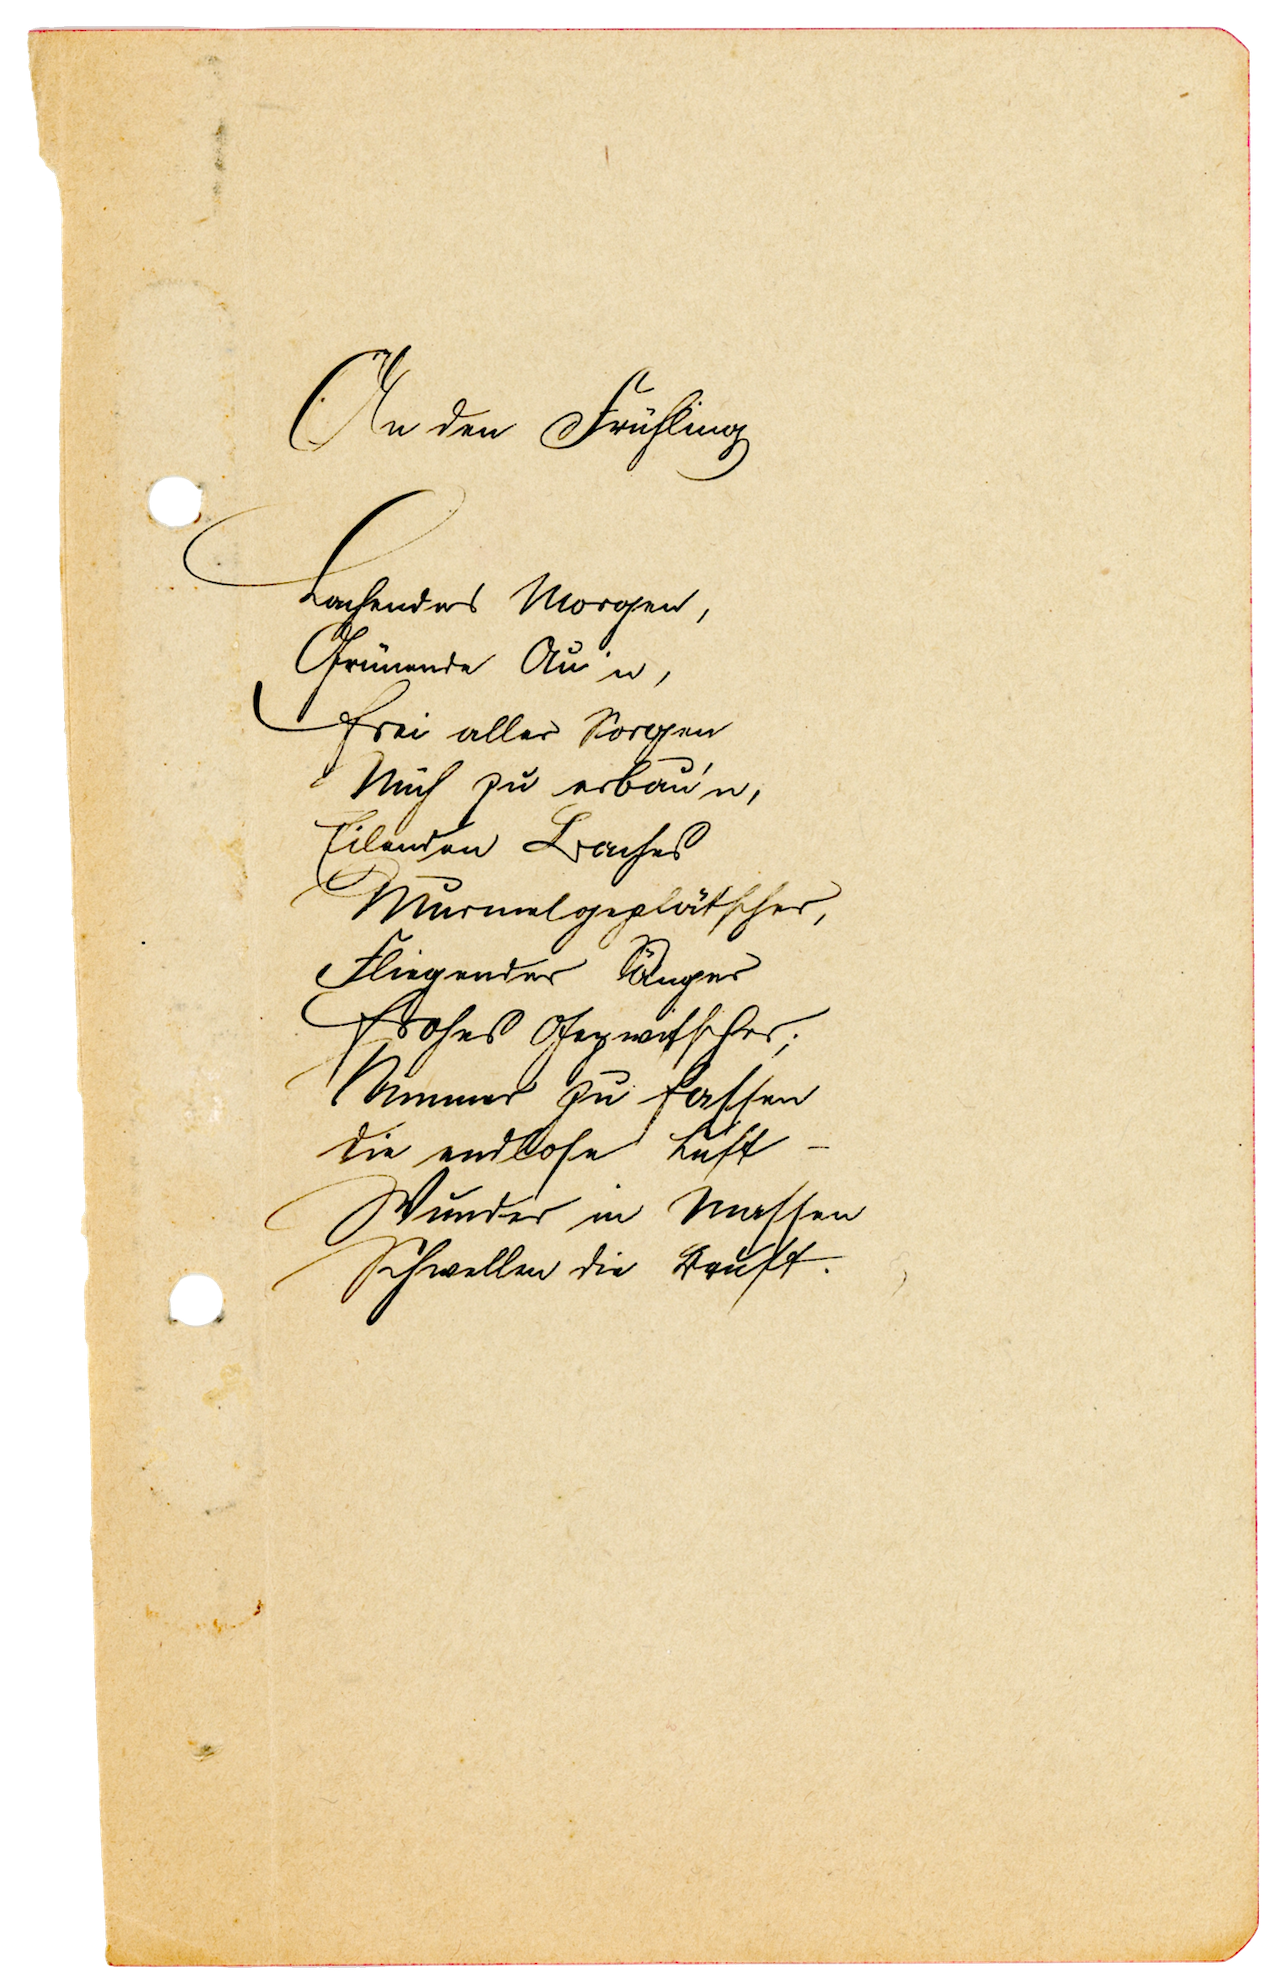 An den Frühling
Lachender Morgen,
Grünende Au'n,
Frei aller Sorgen
Mich zu erbau'n,
Eilenden Baches
Murmelgeplätscher,
Fliegender Sänger
Frohes Gezwitscher;
Nimmer zu fassen
Die endlose Lust –
Wunder in Massen
Schwellen die Brust.